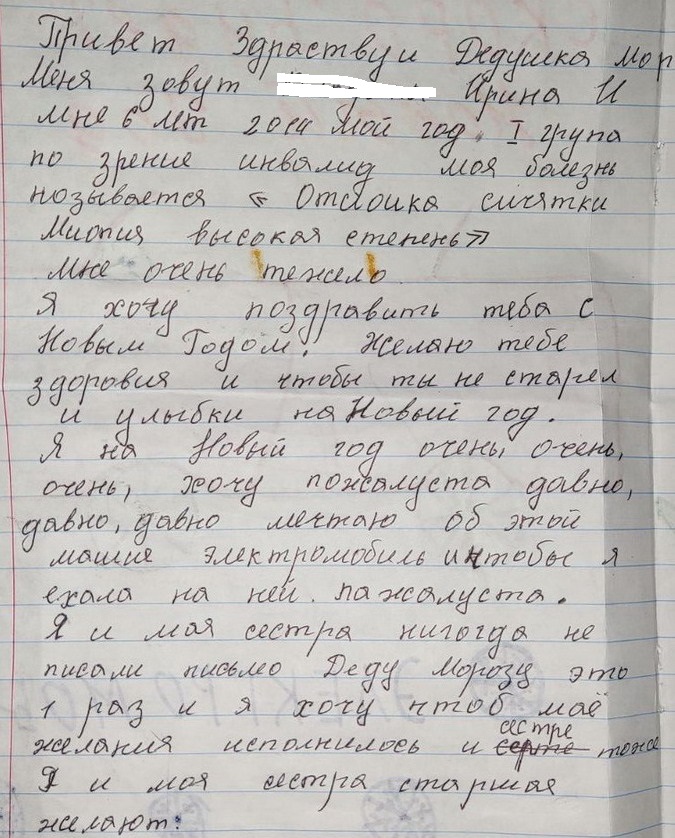 Привет Здраствуй Дедушка мор
Меня зовут Ирина И
мне 6 лет 2014 мой год. I група
по зрение инвалид моя болезнь
нозывается « Отслоика сичятки
Миопия высокая степень»
Мне очень тежело
Я хочу поздравить теба с
Новым Годом. Желаю тебе
здоровия и чтобы ты не старел
и улыбки на Новый год.
Я на Новый год очень, очень,
очень, хочу пожалуста давно,
давно, давно мечтаю об этой
машие электромобиль и чтобы я
ехала на ней. пажалуста.
Я и моя сестра нигогда не
писали письмо Деду Морозу это
1 раз и я хочу чтоб маё
желания исполнилось и сестре тоже
Я и моя сестра старшая
желают: